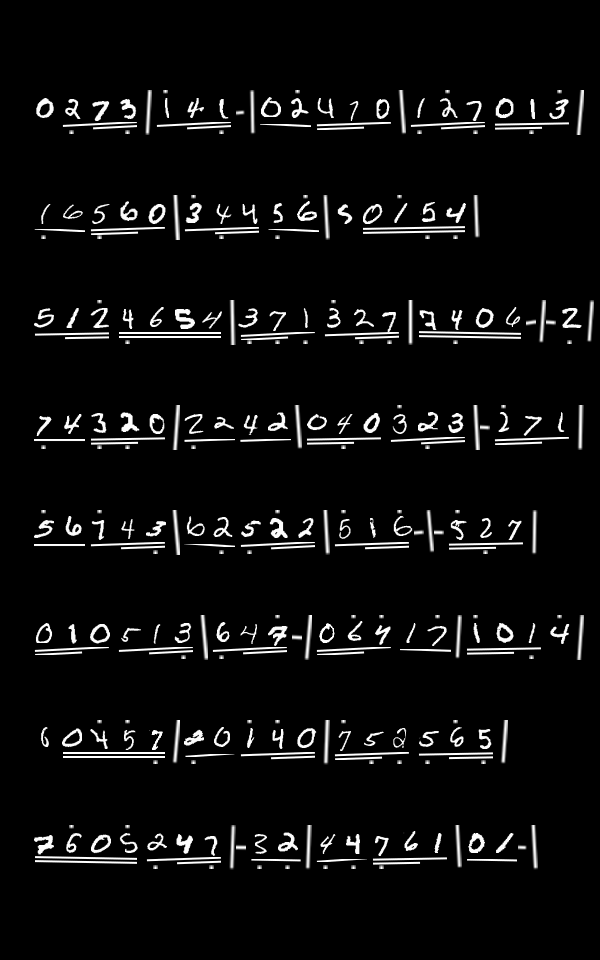 0 273|141-|02 470|127 013|
16 560|344 56|5 0154|
512 4654|371 327|7406-|-2|
74 320|22 42|040 323|-271|
56 743|62 522|516-|-527|
010 513|647-|064 17|101 4|
6 0457|20 140|752 565|
7605 247|-32|44 761|01-|